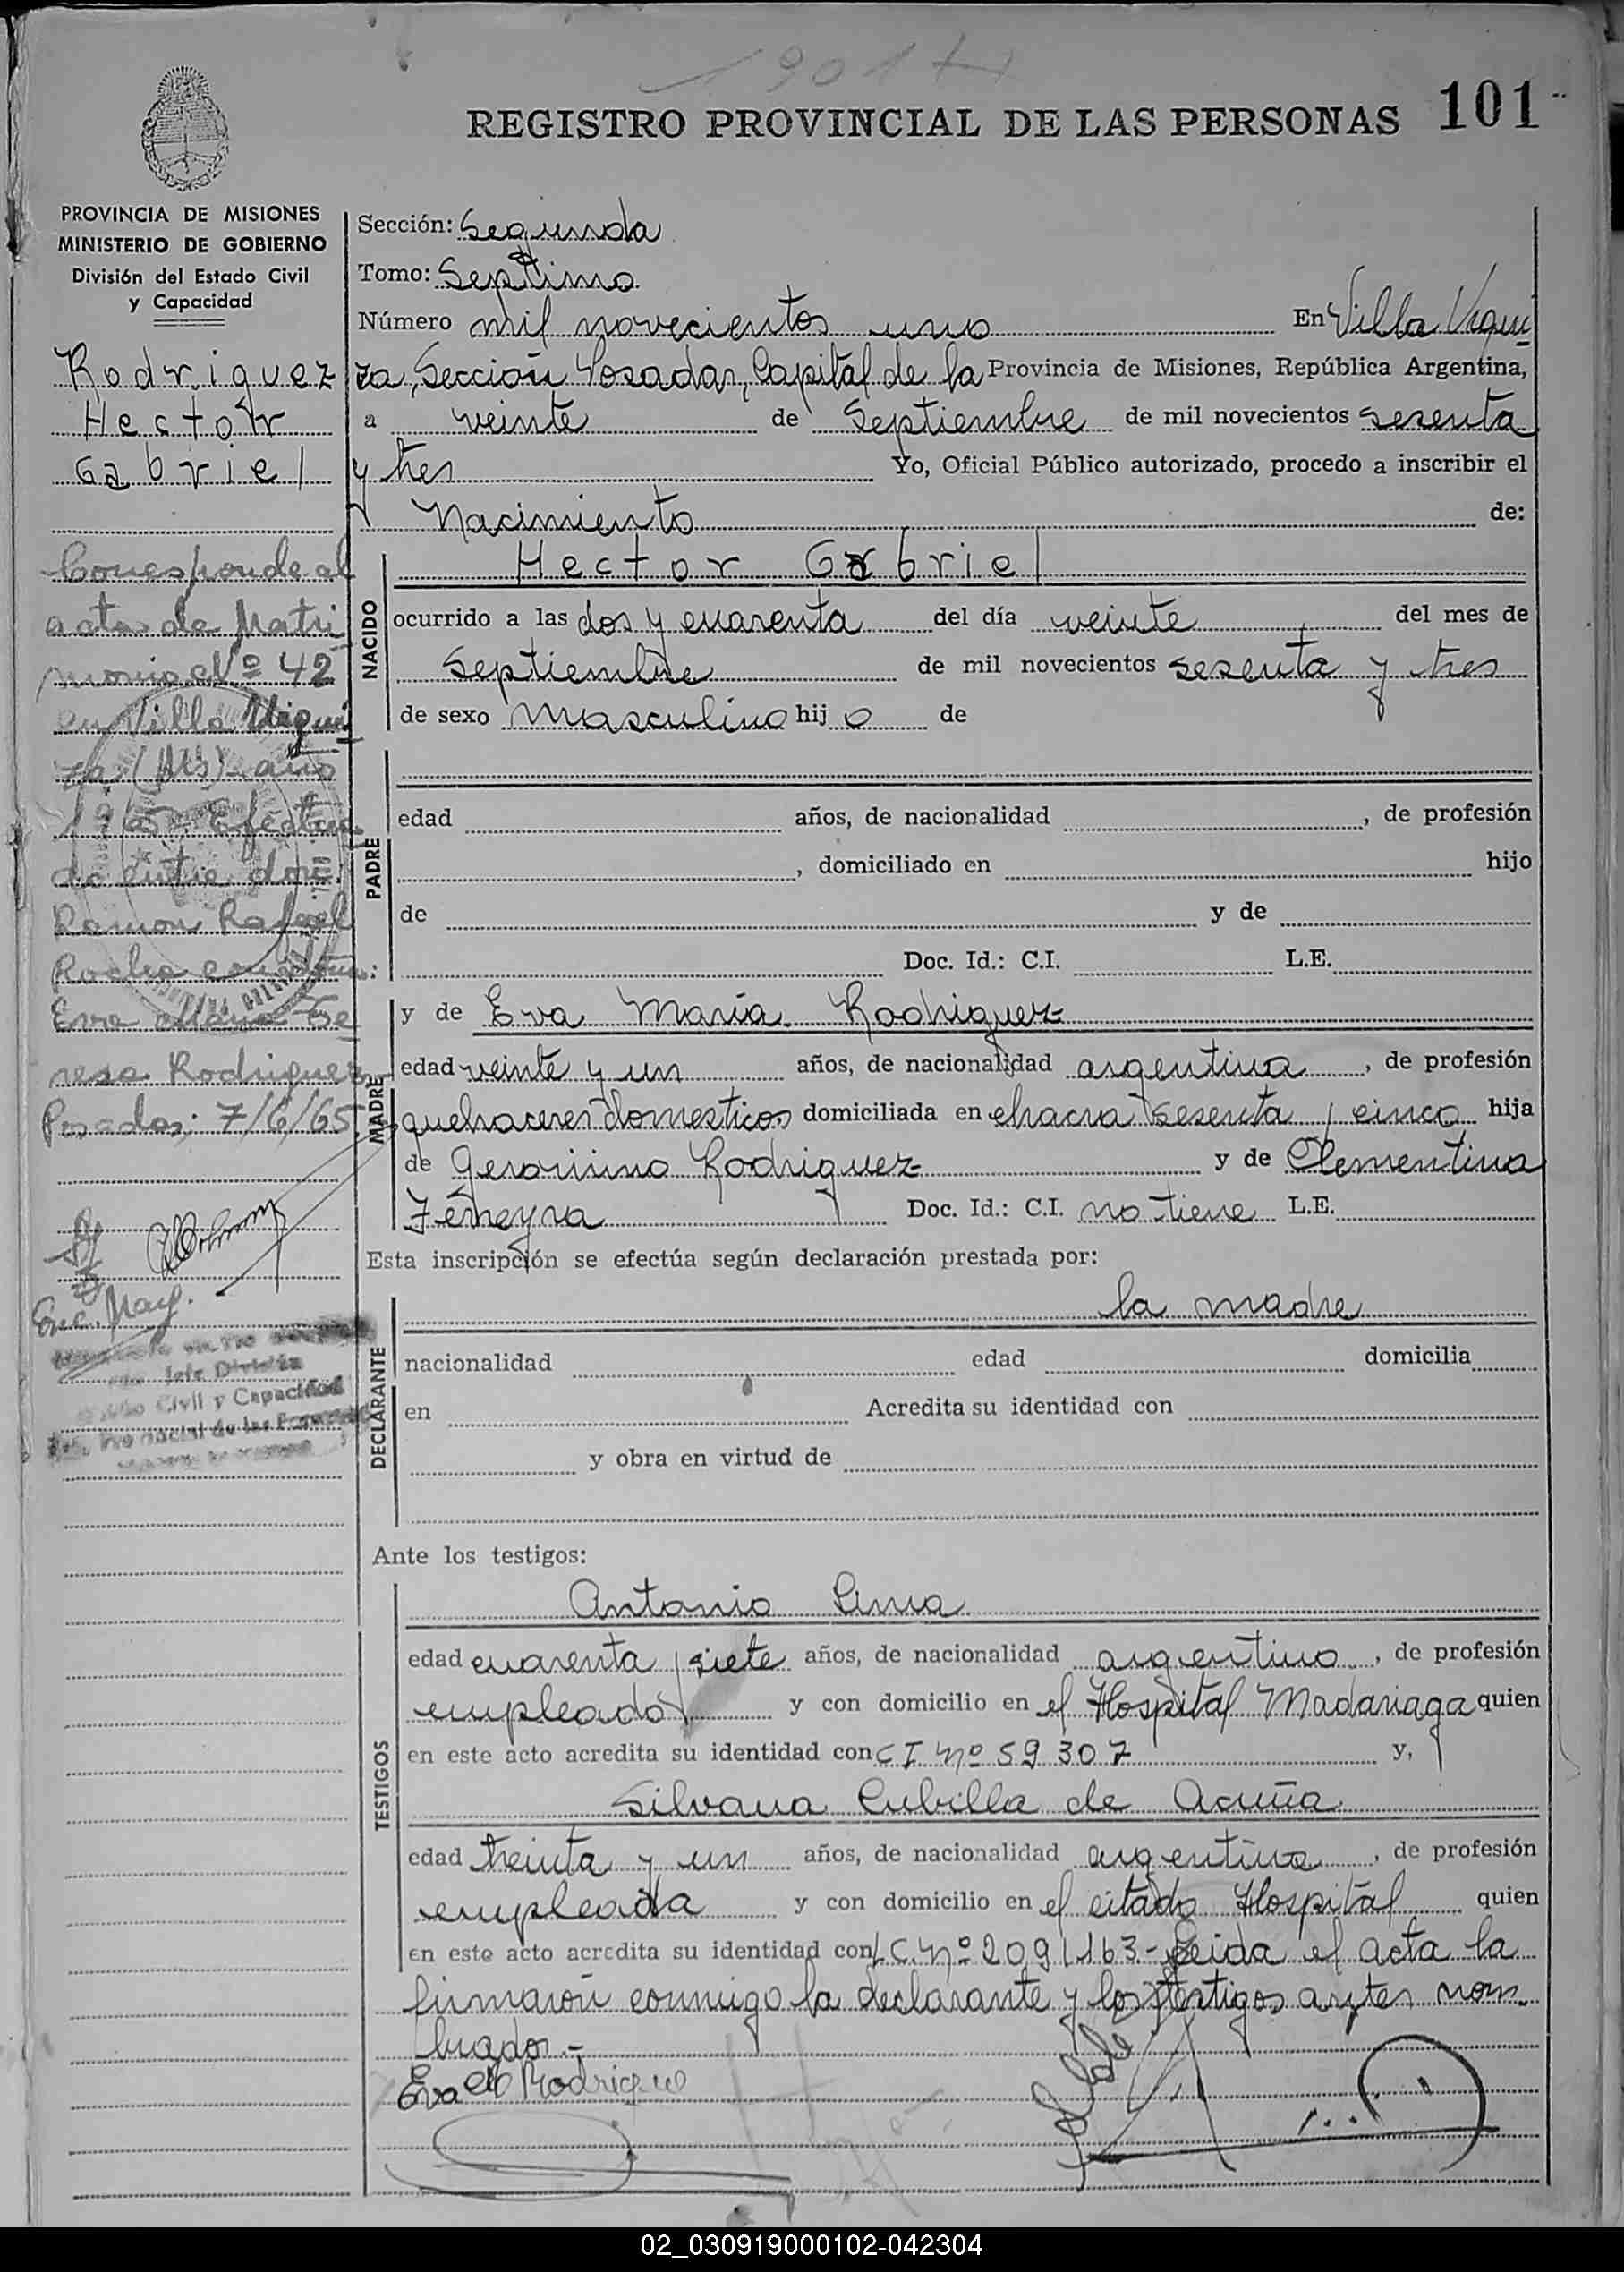 1901
REGISTRO PROVINCIAL DE LAS PERSONAS 101
PROVINCIA DE MISIONES
MINISTERIO DE GOBIERNO
División del Estado Civil
y Capacidad
Rodriguez
Hector
Gabriel
Corresponde al
acta de Matri
monio Nº 42
en Villa Urqui
za (Ms) año
1965. Efectua
do entre don:
Ramon Rafael
Rocha con
Eva Maria Te
resa Rodriguez
Posadas; 7/6/65
Enc. May.
Jefe División
Civil y Capacidad
Provincial de las
Sección: Segunda
Tomo: Septimo
Número mil novecientos uno En Villa Urqui
za, Sección Posadas, Capital de la Provincia de Misiones, República Argentina,
a veinte de Septiembre de mil novecientos sesenta
y tres Yo, Oficial Público autorizado, procedo a inscribir el
Nacimiento de:
NACIDO
Hector Gabriel
ocurrido a las dos y cuarenta del día veinte del mes de
Septiembre de mil novecientos sesenta y tres
de sexo masculino hijo de
PADRE
edad años, de nacionalidad , de profesión
, domiciliado en hijo
de y de
Doc. Id.: C.I. L.E.
MADRE
y de Eva María Rodriguez
edad veinte y un años, de nacionalidad argentina, de profesión
quehaceres domesticos domiciliada en chacra sesenta y cinco hija
de Geronimo Rodriguez y de Clementina
Ferreyra Doc. Id.: C.I. no tiene L.E.
Esta inscripción se efectúa según declaración prestada por:
DECLARANTE
la madre
nacionalidad edad domicilia
en Acredita su identidad con
y obra en virtud de
Ante los testigos:
TESTIGOS
Antonio Lima
edad cuarenta y siete años, de nacionalidad argentino, de profesión
empleado y con domicilio en el Hospital Madariaga quien
en este acto acredita su identidad con C I Nº 59 307 y,
Silvana Cubilla de Acuña
edad treinta y un años, de nacionalidad argentina, de profesión
empleada y con domicilio en el citado Hospital quien
en este acto acredita su identidad con L.C. Nº 2091163- Leida el acta la
firmaron conmigo la declarante y los testigos antes nom
brados.-
Eva M Rodrigue
02_030919000102-042304